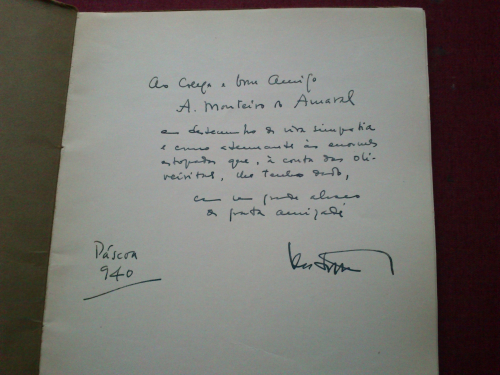 Ao Colega e bom Amigo
A. Monteiro do Amaral
em testemunho de viva simpatia
e como atenuante às enormes
estopadas que, à conta das Oli-
veiritas, lhe tenho dado,
com um grande abraço
de grata amizade
Páscoa
940